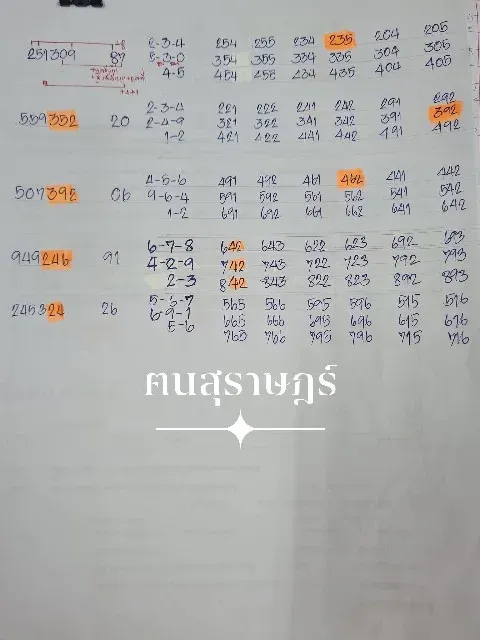 +8
251309 87 2-3-4 254 255 234 235 204 205
5-3-0 354 355 334 335 304 305
4-5 454 455 434 435 404 405
+1+1
2-3-4 221 222 241 242 291 292
559352 20 2-4-9 321 322 341 342 391 392
1-2 421 422 441 442 491 492
4-5-6 491 492 461 462 441 442
507392 06 9-6-4 591 592 561 562 541 542
1-2 691 692 661 662 641 642
6-7-8 642 643 622 623 692 693
949246 91 4-2-9 742 743 722 723 792 793
2-3 842 843 822 823 892 893
5-6-7 565 566 595 596 515 516
245324 26 6-9-1 665 666 695 696 615 616
5-6 765 766 795 796 715 716
ฅนสุราษฎร์